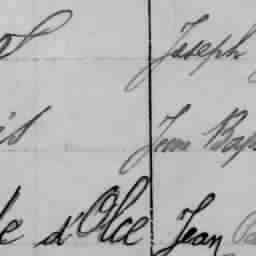 Joseph
is Jean Bap
de d'Olce Jean